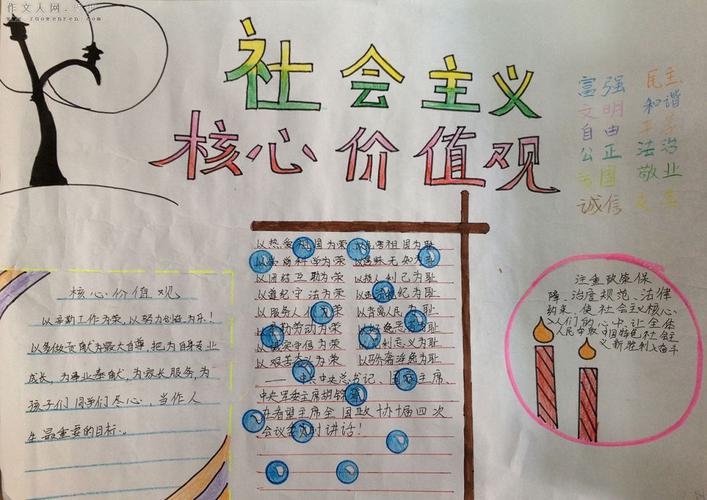 作文人网
www.zuowenren.com
社会主义
核心价值观
富强 民主
文明 和谐
自由
公正 法治
敬业
诚信
核心价值观
以辛勤工作为荣,以努力创造为乐!
为最大自尊,把为自身专业
成长,为事业奉献,为家长服务,为
孩子们同学们尽心,当作人
生最重要的目标。
以热爱祖国为荣 以危害祖国为耻
以崇尚科学为荣 以愚昧无知为耻
以团结互助为荣 以损人利己为耻
以遵纪守法为荣 以违法乱纪为耻
以服务人民为荣 以背离人民为耻
以辛勤劳动为荣 以好逸恶劳为耻
以诚实守信为荣 以见利忘义为耻
以艰苦奋斗为荣 以骄奢淫逸为耻
——中共中央总书记、国家主席、
中央军委主席胡锦涛
在看望主席全国政协十届四次
会议委员时讲话!
注重政策保
障、治度规范、法律
约束,使社会主义核心
人们的心中,让全体
人民